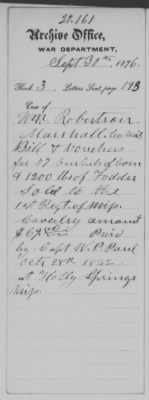 20.161
Archive Office,
WAR DEPARTMENT,
Sept 30th 1876.
Book 3 Letters Sent, page 193
Case of
Wm. Robertson
Marshall Co Miss
Bill & Vouchers
for 37 bushels of Corn
& 1200 lbs of Fodder
Sold to the
1st Regt of Miss.
Cavalry amount
Paid
by Capt W. P. Paul
Octr 28th 1862
at Holly Springs
Miss.